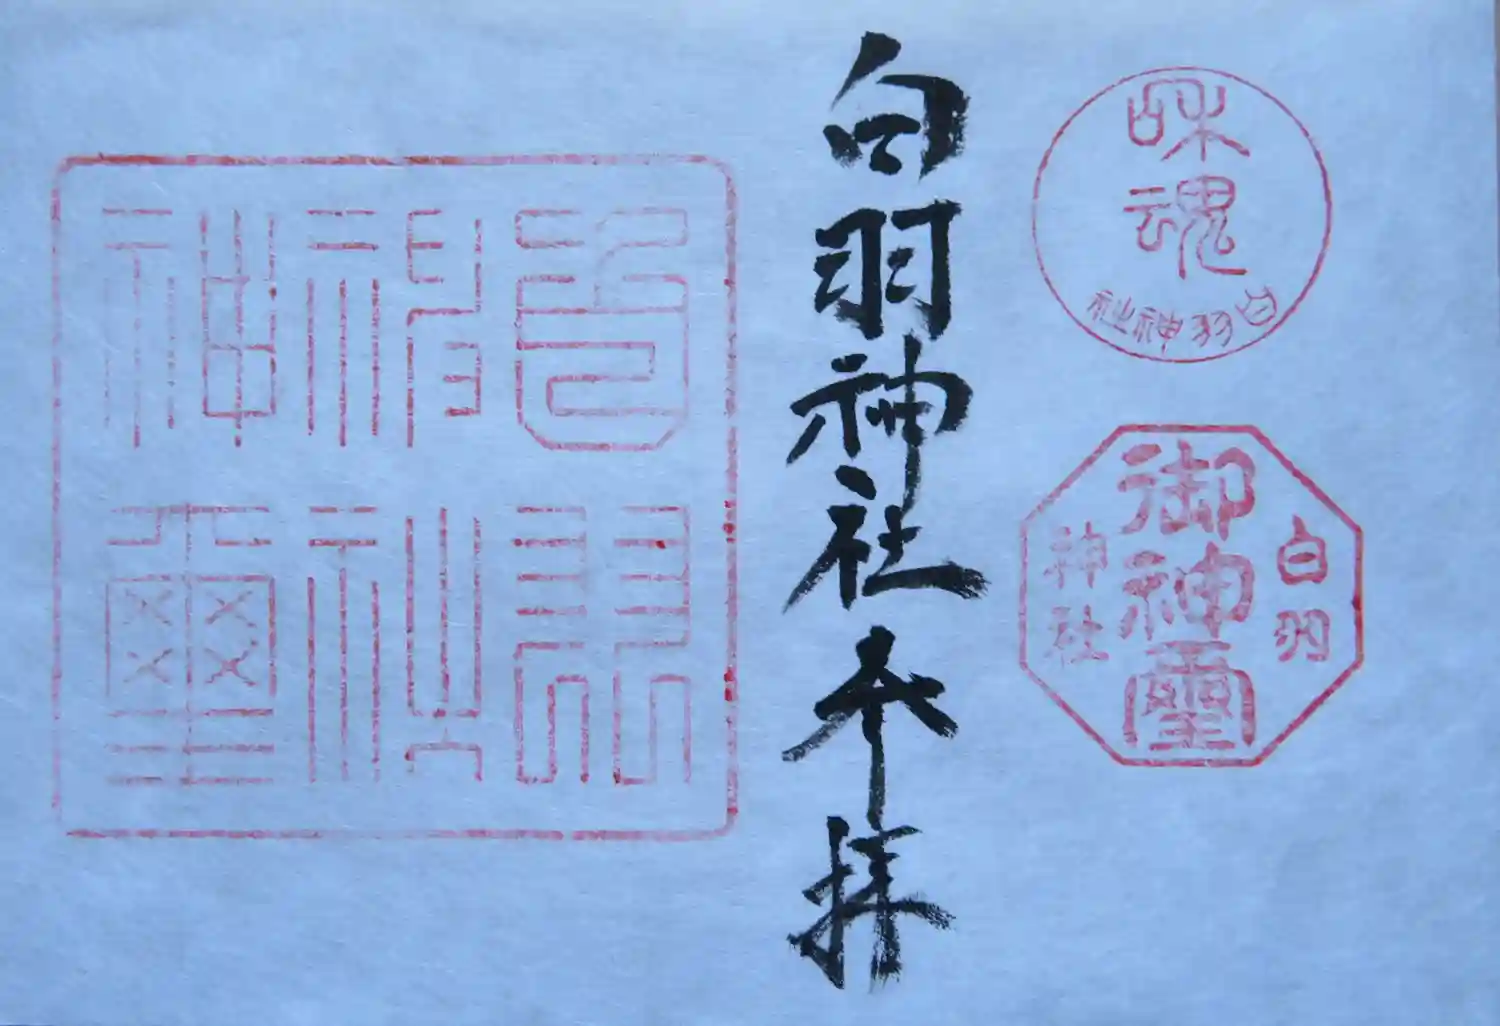 咊魂
白羽神社
白羽
御神璽
神社
白羽神社奉拝
白羽
神社
神璽